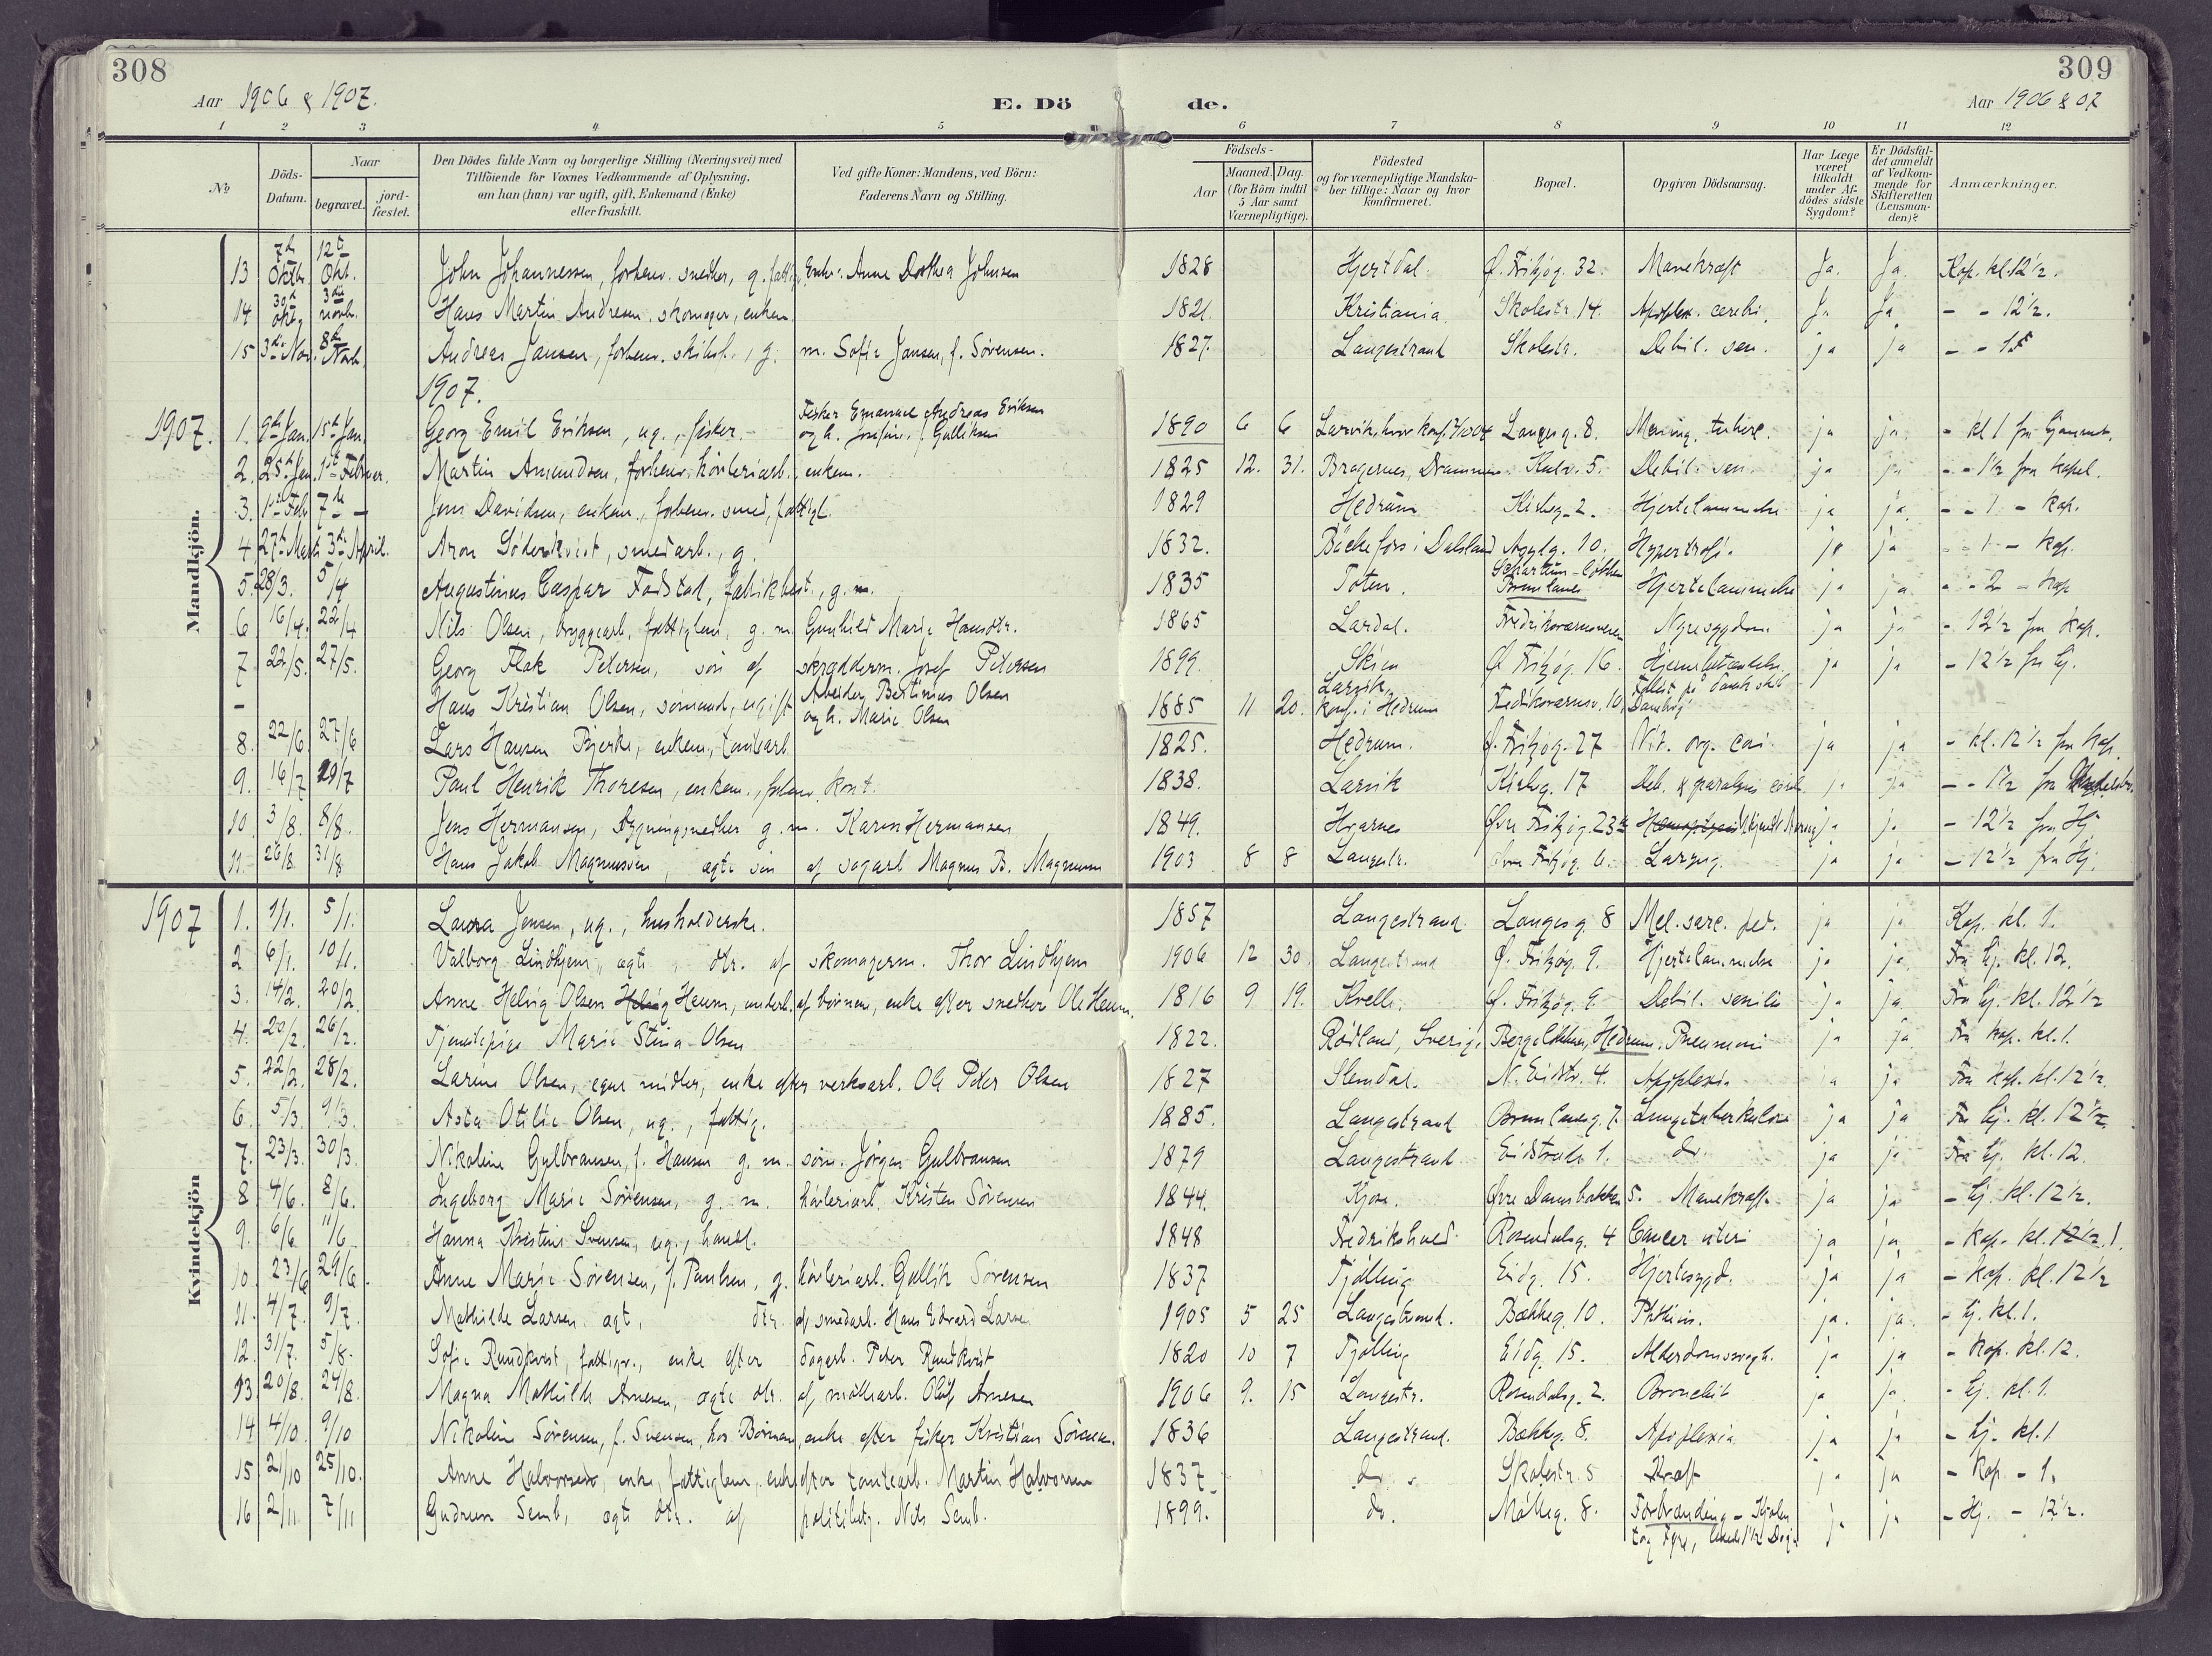 308
309
Aar 1906 & 1907.
E. Dö de.
Aar 1906 & 07
1 2 3 4 5 6 7 8 9 10 11 12
No
Döds-Datum.
Naar
begravet.
jord-fæstet.
Den Dödes fulde Navn og borgerlige Stilling (Næringsvei) med
Tilföiende for Voxnes Vedkommende af Oplysning,
om han (hun) var ugift, gift, Enkemand (Enke)
eller fraskilt.
Ved gifte Koner: Mandens, ved Börn:
Faderens Navn og Stilling.
Födsels-
Aar
Maaned. Dag.
(for Börn indtil
5 Aar samt
Værnepligtige).
Födested
og for værnepligtige Mandska-
ber tillige: Naar og hvor
konfirmeret.
Bopæl.
Opgiven Dödsaarsag.
Har Læge
været
tilkaldt
under Af-
dödes sidste
Sygdom?
Er Dödsfal-
det anmeldt
af Vedkom-
mende for
Skifteretten
(Lensman-
den)?
Anmærkninger.
Mandkjön.
13 7de Oktbr. 12te Okt. John Johannessen, forhenv. snedker, g. Anne Dorthea Johnsen 1828 Hjertdal Ø. Fritzøg. 32. Marekraft Ja. Ja. Kap. kl. 12 1/2.
14 30te 3die novb. Hans Martin Andresen, skomager, enkem. 1821. Kristiania Skolestr. 14. Apoplex. cerebri. Ja Ja - - 12 1/2.
15 3die Nov. 8de Novb. Andreas Jansen, forhenv. skibsb., g. m. Sofie Jansen, f. Sørensen. 1827. Langestrand Skolestr. Debil. sen. ja ja - - 1
1907.
1907. 1. 9de Jan. 15de Jan. Georg Emil Eriksen, ug., fisker. Fisker Emanuel Andreas Eriksen
og h. Josefine f. Gulliksen 1890 6 6 Larvik, hvor konf. Langesg. 8. Mening. tuberc. ja ja - kl 1 fra hjemmet.
2. 25de Jan. 1ste Februar. Martin Amundsen, forhenv. høvleriarb. enkem. 1825 12. 31. Bragernes, Drammen. 5. Debil. sen. ja ja - - 1 1/2 fra kapel.
3. 1ste Feb 7de - Jens Davidsen, enkem., forhenv. smed, fattigl. 1829 Hedrum Kirkeg. 2. Hjertelammelse ja ja. - - 1 - kap.
4. 27de Marts 3die April. Aron Söderkvist, smedarb., g. 1832. Bäckefors i Dalsland Asylg. 10. Hypertrofi. ja ja - - 1 - kap.
5. 28/3. 5/4 Augustinus Caspar Fadstad, fabrikbest., g. m. 1835 Toten. Brunlanes Hjertelammelse ja ja - - 2 - kap
6 16/4. 22/4 Nils Olsen, bryggearb., fattiglem, g. m. Gunhild Marie Hansdtr. 1865 Lardal. Fredriksværnsveien Nyresygdom ja ja - 12 1/2 fra kap.
7. 22/5. 27/5. Georg Flak Petersen, søn af skrædderm. Josef Petersen 1899. Skien Ø Fritzøg. 16. Hjernebetændelse. ja ja - 12 1/2 fra hj.
- Hans Kristian Olsen, sømand, ugift Arbeider Bertinius Olsen
og h. Marie Olsen 1885 11 20. Larvik,
konf. i Hedrum Fredriksværnsv. 10.
8. 22/6. 27/6 Lars Hansen Bjerke, enkem., tomtarb. 1825. Hedrum. Ø. Fritzøg. 27 Vit. org. cor. ja ja - kl. 12 1/2 fra kap.
9. 16/7 /7 Paul Henrik Thoresen, enkem., forhenv. kont. 1838. Larvik Kirkeg. 17 Deb. & paralysis cord. ja ja - - 1 1/2 fra
10. 3/8. 8/8. Jens Hermansen, bygningssnedker g. m. Karen Hermansen 1849. Hvarnes Øvre Fritzøg. 23 ja ja - 12 1/2 fra Hj
11. 26/8. 31/8 Hans Jakob Magnussen, ægte søn af sagarb Magnus B. Magnussen 1903 8 8 Langestr. Øvre Fritzøg. 6. ja ja - 12 1/2 fra Hj.
Kvindekjön
1907 1. 1/1. 5/1. Laura Jensen, ug., husholderske. 1857 Langestrand. Langesg. 8 Mel. sarc. ped. ja ja Kap. kl. 1.
2 6/1. 10/1. Valborg Lindhjem, ægte, dtr. af skomagerm. Thor Lindhjem 1906 12 30. Langestrand Ø. Fritzøg. 9. Hjertelammelse ja ja Fra hj. kl. 12.
3. 14/2. 20/2. Anne Helvig Olsen Heum, underh. af børnene, enke efter snedker Ole Heum. 1816 9 19. Kvelle. Ø. Fritzøg. 9 Debil. senilis ja ja Fra hj. kl. 12 1/2
4. 20/2. 26/2. Tjenestepige Marie Stina Olsen 1822. Rödland, Sverige Hedrum. Pneumoni ja ja Fra kap. kl. 1.
5. 22/2. 28/2. Larine Olsen, egne midler, enke efter verksarb. Ole Peter Olsen 1827 Slemdal. N. Eidstr. 4. Apoplexia ja ja Fra kap. kl. 12 1/2.
6. 5/3. 9/3. Asta Otilie Olsen, ug., fattig. 1885. Langestrand Brunlanesg. 7. Lungetuberkulose ja ja Fra hj. kl. 12 1/2.
7. 23/3. 30/3. Nikoline Gulbransen, f. Hansen g. m. søm. Jørgen Gulbransen 1879 Langestrand Eidstrede 1. do. ja ja Fra hj. kl. 12.
8. 4/6. 8/6. Ingeborg Marie Sørensen, g. m. høvleriarb. Kristen Sørensen 1844. Kjose. Øvre Damsbakken 5. Marekraft. ja ja - hj. kl. 12 1/2.
9. 6/6 11/6 Hanna Kristine Svensen, ug., handl. 1848 Fredrikshald. Rosendalsg. 4 Cancer uteri ja ja - kap. kl. 12 1/2. 1.
10. 23/6 29/6. Anne Marie Sørensen, f. Paulsen, g. høvleriarb. Gullik Sørensen 1837 Tjølling Eidg. 15. Hjertesygd. ja ja - kap. kl. 12 1/2
11. 4/7. 9/7. Mathilde Larsen, ægt, dtr. af smedarb. Hans Edvard Larsen 1905 5 25 Langestrand. Bækkeg. 10. Phthisis. ja. ja. - hj. kl. 1.
12. 31/7. 5/8. Sofie Rundkvist, fattigv., enke efter dagarb. Peter Rundkvist 1820 10 7 Tjølling Eidg. 15. Alderdomssvagh. ja ja - kap. kl. 12.
13 20/8. 24/8. Magna Mathilde Arnesen, ægte dtr. af møllearb. Oluf Arnesen 1906 9. 15 Langestr. Rosendalsg. 2. Bronchit ja ja. - hj. kl. 1.
14 4/10 9/10 Nikoline Sørensen, f. Svensen, hos Børnene, enke efter fisker Kristian Sørensen. 1836 Langestrand. Bækkeg. 8. Apoplexia ja ja - hj. kl. 1
15 21/10 25/10. Anne Halvorsen, enke, fattiglem, enke efter tomtearb. Martin Halvorsen 1837. do. Skolestr. 5 Kræft ja ja - kap. - 1.
16 2/11 7/11 Gudrun Semb, ægte dtr. af politibetj. Nils Semb. 1899. do. Mølleg. 8. Forbrænding - Kjolen
tog Fyr, levede 1 1/2 Døgn ja ja - Hj. - 12 1/2.